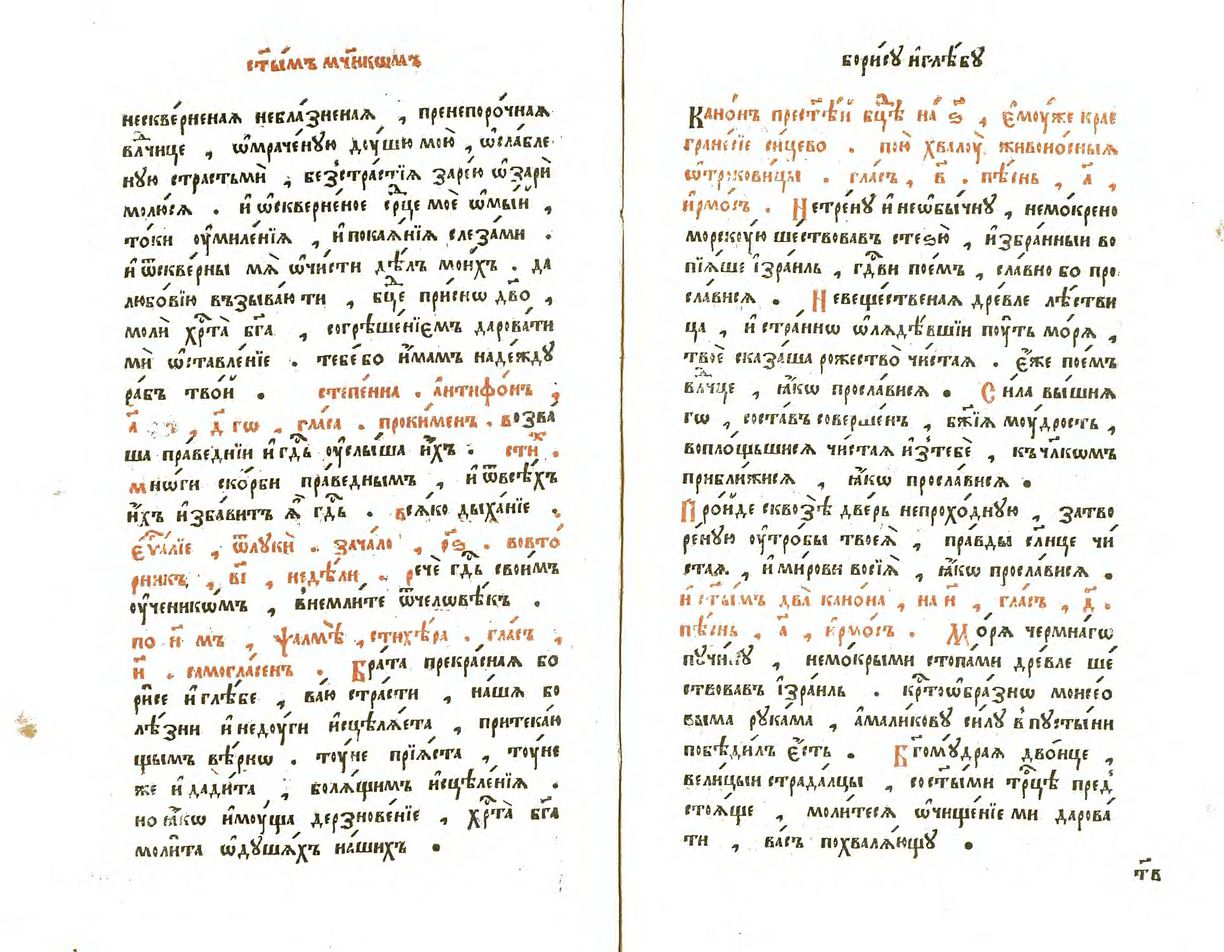 ст҃ы́мъ мч҃нкѡмъ
нескве́рненая небла́зненая , пренепоро́чная
влⷣчице , ѡ҆мраче́нꙋю дꙋ́шꙋ мою̀ , ѡ҆сла́бле
нꙋю страстьмѝ , безстра́стїѧ заре́ю ѡ҆зарѝ
молю́сѧ . и҆ ѡ҆скверне́ное срⷣце моѐ ѡ҆мы́й ,
то́ки оу҆миле́нїѧ , и҆ покаѧ́нїѧ слеза́ми .
и҆ ѿскве́рны мѧ̀ ѡ҆чи́сти дѣ́лъ мои́хъ . да
любо́вїю възыва́ю ти , бцⷣе при́снѡ дв҃о ,
молѝ хрⷭ҇та̀ бг҃а , согрѣше́нїємъ дарова́ти
мѝ ѡ҆ставле́нїе . тебе́ бо и҆́мамъ наде́ждꙋ
ра́бъ тво́й .  степе́нна . а҆нтифо́нъ ,
а҃ , д҃ гѡ , гла́са . проки́менъ . возва
ша пра́веднїи и҆ гдⷭ҇ь оу҆слы́ша и҆́хъ . сти́х .
мнѡ́ги ско́рби пра́веднымъ , и҆ ѿвсѣ́хъ
и҆́хъ и҆зба́витъ ѧ҆̀ гдⷭ҇ь . всѧ́ко дыха́нїе .
є҆ѵⷢ҇а́лїе , ѿлꙋкѝ . зача́ло , рѕ҃ . вовто́
рникъ , в҃і , неде́ли . речѐ гдⷭ҇ь свои́мъ
оу҆ченикѡ́мъ , внемли́те ѿчелѡвѣ́къ .
по н҃ мъ , ѱалмѣ̀ , стихѣ́ра . гла́съ ,
и҃ . самогла́сенъ . Бра́та прекра́сная бо
ри́се и҆ глѣ́бе , ва́ю стра́сти , на́шѧ бо
лѣ́зни и҆ недꙋ́ги и҆сцѣлѧ́ета , притека́ю
щымъ вѣ́рнѡ . тꙋ́не прїѧ́ста , тꙋ́не
же и҆ дади́та , болѧ́щимъ и҆сцѣле́нїѧ .
но ꙗ҆́кѡ и҆мꙋ́ща дерзнове́нїе , хрⷭ҇та̀ бг҃а
моли́та ѡ҆дꙋша́хъ на́шихъ .
бори́сꙋ и҆ глѣ́бꙋ
Кано́нъ прест҃ѣ́й бцⷣе на ѕ҃ , є҆мꙋ́же крае
гране́сїе си́цево . пою̀ хвалꙋ̀ живоно́сныѧ
ѻ҆трокови́цы . гла́съ , в҃ . пѣ́снь , а҃ ,
і҆рмо́съ . Нетре́нꙋ и҆ неѡ҆бы́чнꙋ , немо́крено
морскꙋ́ю ше́ствовавъ стезю̀ , и҆збра́нныи во
пїѧ́ше і҆зра́иль , гдⷭ҇ви пое́мъ , сла́вно бо про
сла́висѧ . Невеще́ственая дре́вле лѣ́стви
ца , и҆ стра́ннѡ ѡ҆лѧдѣ́вшїи пꙋ́ть мо́рѧ ,
твоѐ сказа́ша рожество̀ чи́стая . є҆́же пое́мъ
влⷣчце , ꙗ҆́кѡ просла́висѧ . Си́ла вы́шнѧ
гѡ , соста́въ соверше́нъ , бж҃їѧ мꙋ́дрость ,
вопло́щьшисѧ чи́стая и҆зтебѐ , къ чл҃кѡмъ
прибли́жисѧ , ꙗ҆́кѡ просла́висѧ .
Про́йде сквозѣ̀ две́рь непрохо́днꙋю , затво
ре́нꙋю оу҆тро́бы твоеѧ̀ , пра́вды сл҃нце чи́
стая , и҆ ми́рови восїѧ̀ , ꙗ҆́кѡ просла́висѧ .
и҆ ст҃ы́мъ два̀ кано́на , на и҃ , гла́съ , д҃ .
пѣ́снь , а҃ , і҆рмо́съ . Мо́рѧ чермна́гѡ
пꙋчи́нꙋ , немо́крыми стопа́ми дре́вле ше́
ствовавъ і҆зра́иль . крⷭ҇тоѡ҆бра́знѡ моисе́о
выма рꙋка́ма , а҆мали́ковꙋ си́лꙋ в пꙋсты́ни
побѣди́лъ є҆́сть . Бг҃омꙋ́драя дво́ице ,
вели́цыи страда́лцы , сост҃ы́ми трⷪ҇цѣ пред̾
стоѧ́ще , моли́тесѧ ѡ҆чище́нїе ми дарова́
ти , ва́съ похвалѧ́ющꙋ .
т҃в